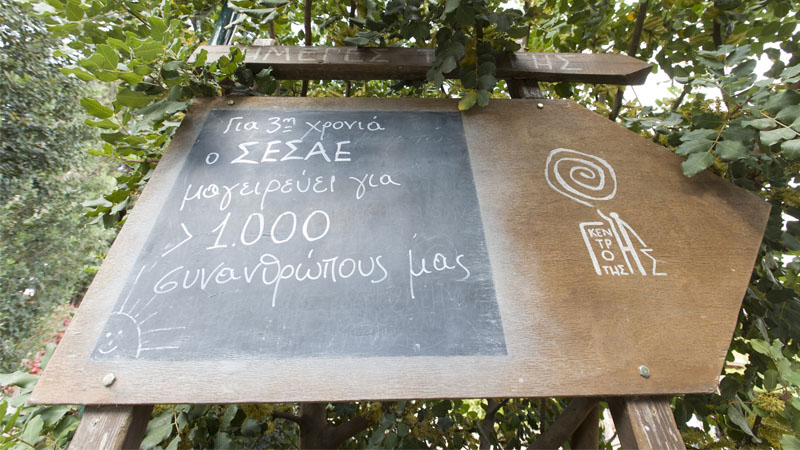 Για 3η χρονιά
ο ΣΕΣΑΕ
μαγειρεύει για
>1.000
συνανθρώπους μας
ΚΕΝ
ΤΡ
Ο
ΤΗΣ
ΓΗΣ